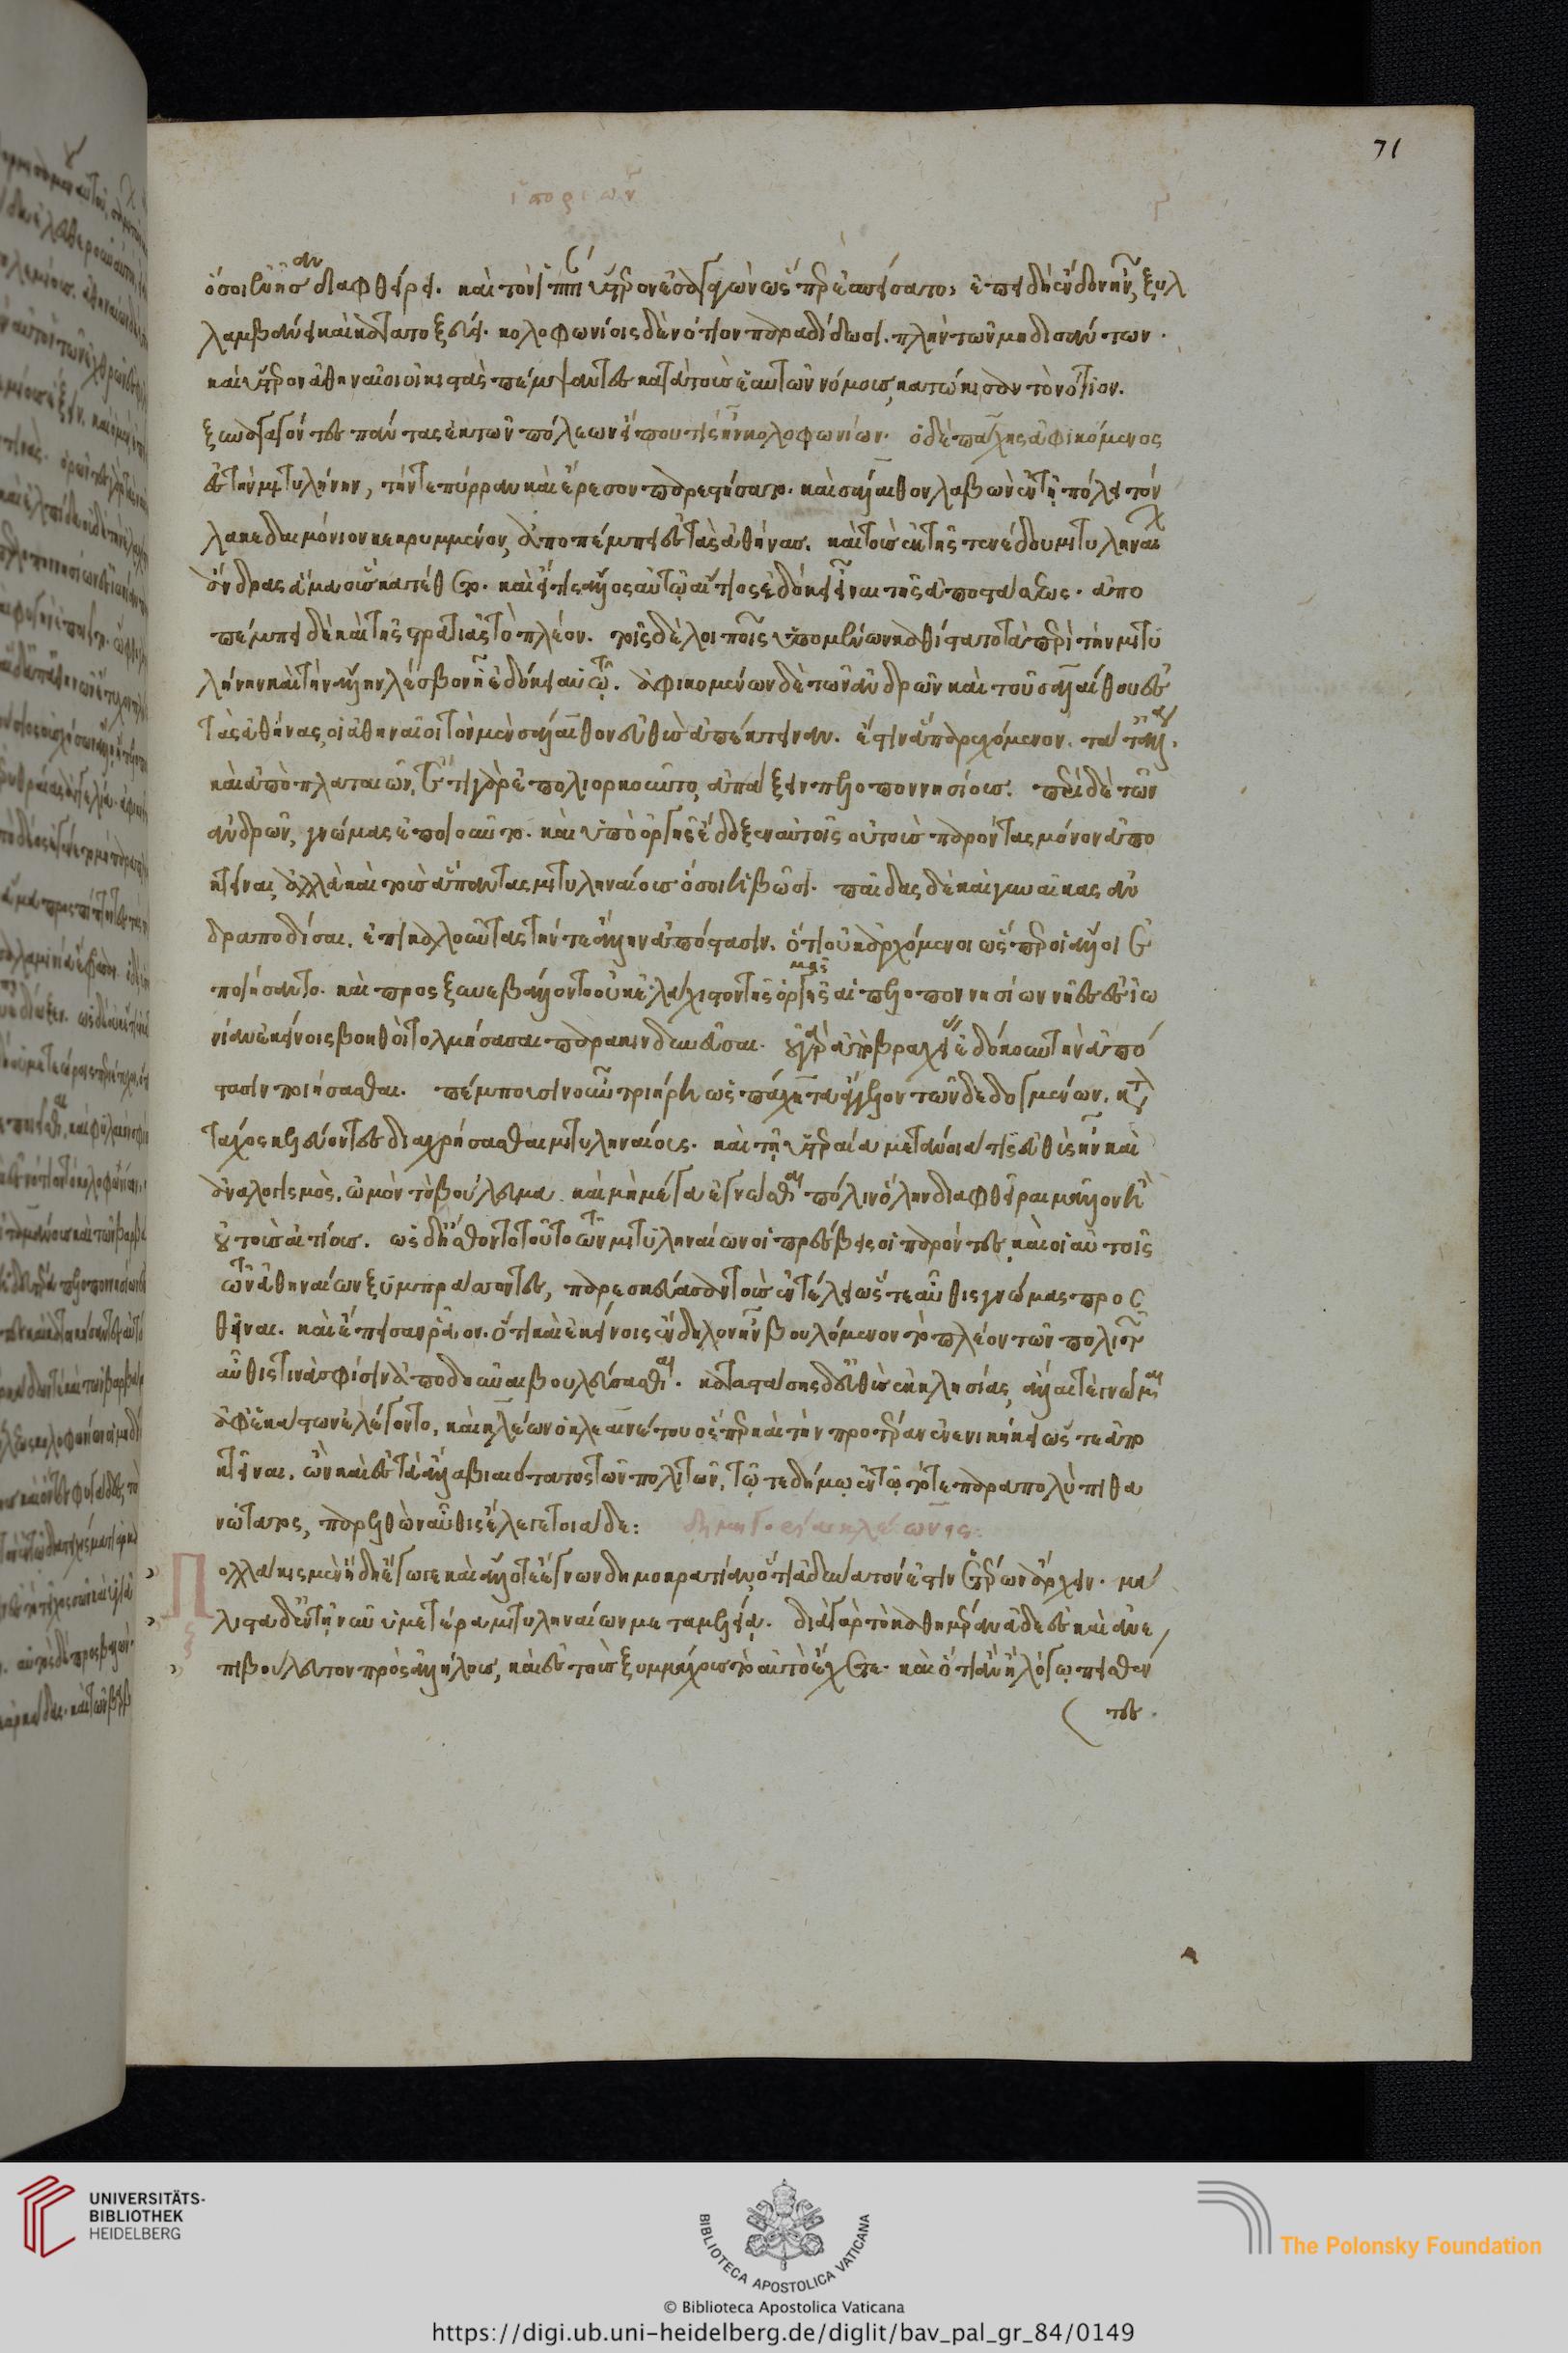 71
ἱστοριῶν
ὅσοι ἐνῆσαν διαφθείρει. καὶ τὸν ἱππίαν ὕστερον ἐσαγαγὼν ὥσπερ ἐσπείσατο, ἐπειδὴ ἔνδον ἦν, ξυλ
λαμβάνει καὶ κατατοξεύει. κολοφωνίοις δὲ νότιον παραδίδωσι. πλὴν τῶν μηδισάντων.
καὶ ὕστερον ἀθηναῖοι οἰκιστὰς πέμψαντες κατὰ τοὺς ἑαυτῶν νόμους κατώκισαν τὸ νότιον.
ξυναγαγόντες πάντας ἐκ τῶν πόλεων εἴ που τίς ἦν κολοφωνίων. ὁ δὲ πάχης ἀφικόμενος
ἐς τὴν μιτυλήνην, τήν τε πύρραν καὶ ἔρεσον παρεστήσατο. καὶ σάλαιθον λαβὼν ἐν τῇ πόλει τὸν
λακεδαιμόνιον κεκρυμμένον, ἀποπέμπει ἐς τὰς ἀθήνας. καὶ τοὺς ἐκ τῆς τενέδου μιτυληναίων
ἄνδρας ἅμα οὓς κατέθετο. καὶ εἴ τις ἄλλος αὐτῷ αἴτιος ἐδόκει εἶναι τῆς ἀποστάσεως. ἀπο
πέμπει δὲ καὶ τῆς στρατιᾶς τὸ πλέον. τοῖς δὲ λοιποῖς ὑπομένων καθίστατο τὰ περὶ τὴν μιτυ
λήνην καὶ τὴν ἄλλην λέσβον ᾗ ἐδόκει αὐτῷ. ἀφικομένων δὲ τῶν ἀνδρῶν καὶ τοῦ σαλαίθου ἐς
τὰς ἀθήνας, οἱ ἀθηναῖοι τὸν μὲν σάλαιθον εὐθὺς ἀπέκτειναν. ἔστιν ἃ παρεχόμενον. τά τ' ἄλλα.
καὶ ἀπὸ πλαταιῶν, ἔτι γὰρ ἐπολιορκοῦντο, ἀπάξειν πελοποννησίους. περὶ δὲ τῶν
ἀνδρῶν, γνώμας ἐποιοῦντο. καὶ ὑπὸ ὀργῆς ἔδοξεν αὐτοῖς οὐ τοὺς παρόντας μόνον ἀπο
κτεῖναι, ἀλλὰ καὶ τοὺς ἅπαντας μιτυληναίους ὅσοι ἡβῶσι. παῖδας δὲ καὶ γυναῖκας ἀν
δραποδίσαι. ἐπικαλοῦντες τήν τε ἄλλην ἀπόστασιν. ὅτι οὐκ ἀρχόμενοι ὥσπερ οἱ ἄλλοι ἐ
ποιήσαντο. καὶ προσξυνεβάλλοντο οὐκ ἐλάχιστον τῆς ὁρμῆς αἱ πελοποννησίων νῆες ἐς ἰω
νίαν ἐκείνοις βοηθοὶ τολμήσασαι παρακινδυνεῦσαι. οὐ γὰρ ἀπὸ βραχείας ἐδόκουν τὴν ἀπό
στασιν ποιήσασθαι. πέμπουσιν οὖν τριήρη ὡς πάχητα ἄγγελον τῶν δεδογμένων. κατὰ
τάχος κελεύοντες διαχρήσασθαι μιτυληναίους. καὶ τῇ ὑστεραίᾳ μετάνοιά τις εὐθὺς ἦν καὶ
ἀναλογισμὸς, ὠμὸν τὸ βούλευμα καὶ μὴ μέγα ἐγνῶσθαι πόλιν ὅλην διαφθεῖραι μᾶλλον ἢ
οὐ τοὺς αἰτίους. ὡς δ' ᾔσθοντο τοῦτο τῶν μιτυληναίων οἱ πρέσβεις οἱ παρόντες καὶ οἱ αὐτοῖς
τῶν ἀθηναίων ξυμπράσσοντες, παρεσκεύασαν τοὺς ἐν τέλει ὥστε αὖθις γνώμας προσ
θῆναι. καὶ ἔπεισαν ῥᾷον. ὅτι καὶ ἐκείνοις ἔνδηλον ἦν βουλόμενον τὸ πλέον τῶν πολιτῶν
αὖθις τινὰς σφίσιν ἀποδοῦναι βουλεύσασθαι. καταστάσης δ' εὐθὺς ἐκκλησίας, ἄλλαι τε γνῶμαι
ἀφ' ἑκάστων ἐλέγοντο, καὶ κλέων ὁ κλεαινέτου ὅσπερ καὶ τὴν προτέραν ἐνενικήκει ὥστε ἀπο
κτεῖναι. ὢν καὶ ἐς τὰ ἄλλα βιαιότατος τῶν πολιτῶν, τῷ τε δήμῳ ἐν τῷ τότε παραπολὺ πιθα
νώτατος, παρελθὼν αὖθις ἔλεγε τοιάδε: δημηγορία κλέωνος:
Πολλάκις μὲν ἤδη ἔγωγε καὶ ἄλλοτε ἔγνων δημοκρατίαν, ὅτι ἀδύνατόν ἐστιν ἑτέρων ἄρχειν. μά
λιστα δ' ἐν τῇ νῦν ὑμετέρᾳ μιτυληναίων μεταμελείᾳ. διὰ γὰρ τὸ καθημέραν ἀδεὲς καὶ ἀνε
πιβούλευτον πρὸς ἀλλήλους, καὶ ἐς τοὺς ξυμμάχους τὸ αὐτὸ ἔχετε. καὶ ὅτι ἂν ἢ λόγῳ πεισθέν
τες.
UNIVERSITÄTS-
BIBLIOTHEK
HEIDELBERG
BIBLIOTECA APOSTOLICA VATICANA
The Polonsky Foundation
© Biblioteca Apostolica Vaticana
https://digi.ub.uni-heidelberg.de/diglit/bav_pal_gr_84/0149